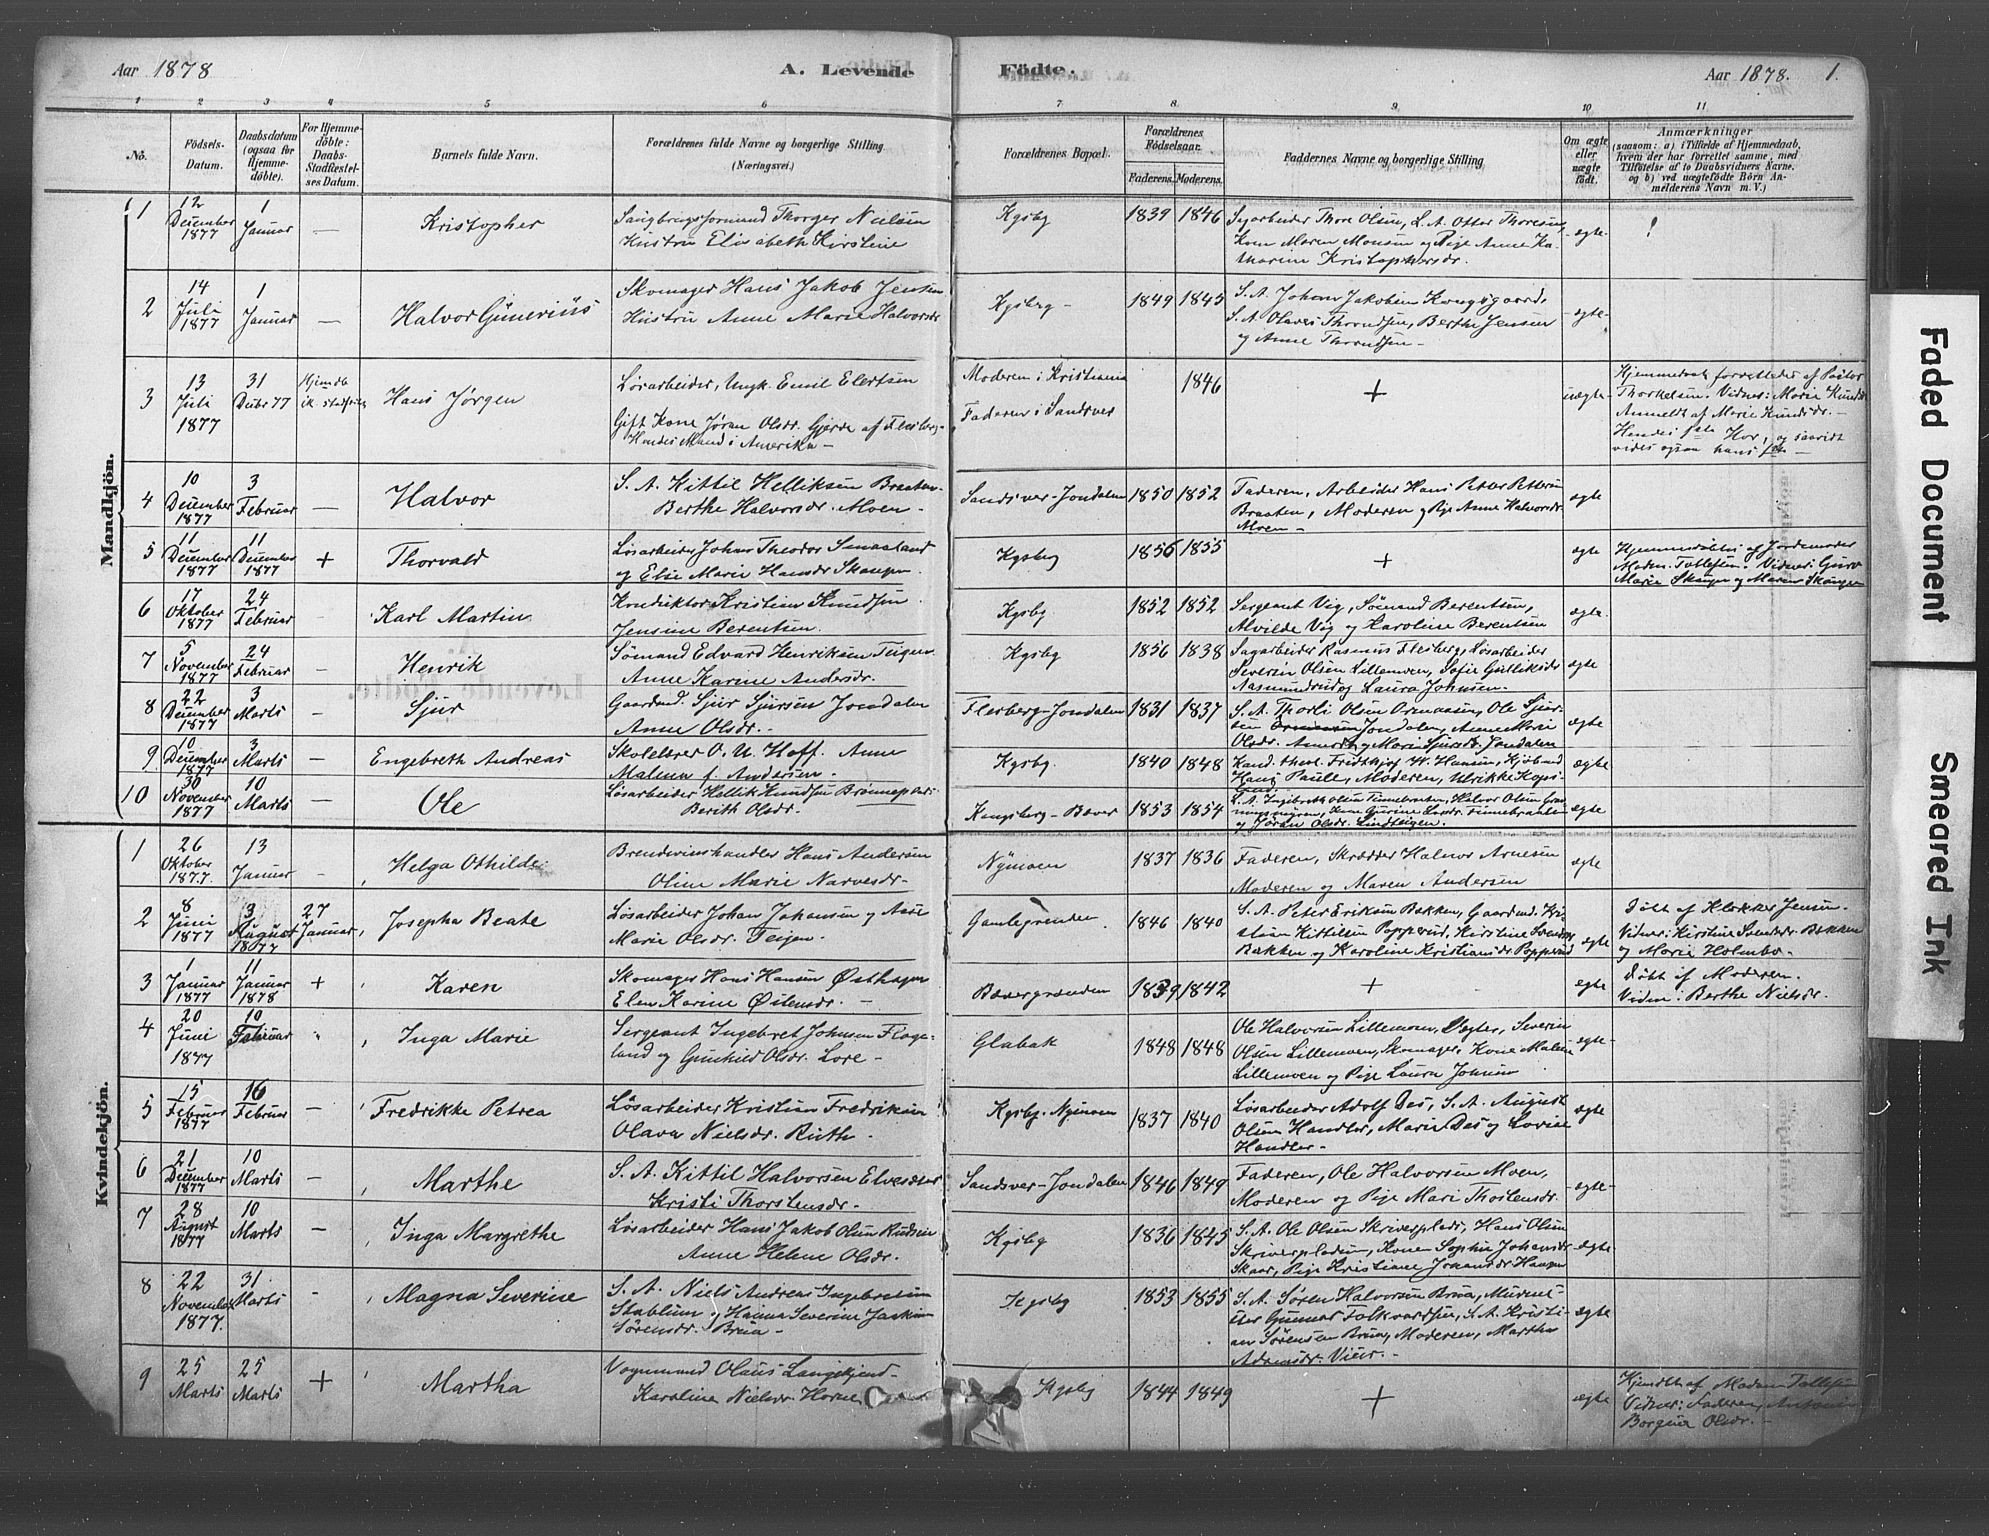 Aar 1878
A. Levende
Födte.
Aar 1878. 1.
1 2 3 4 5 6 7 8 9 10 11
No.
Födsels-Datum.
Daabsdatum (ogsaa for Hjemme-döbte).
For Hjemme-döbte: Daabs-Stadfæstel-ses Datum.
Barnets fulde Navn.
Forældrenes fulde Navne og borgerlige Stilling (Næringsvei.)
Forældrenes Bopæl.
Forældrenes Födselsaar.
Faderens. Moderens.
Faddernes Navne og borgerlige Stilling
Om ægte eller uægte födt.
Anmærkninger
(saasom: a) i Tilfælde af Hjemmedaab,
hvem der har forrettet samme, med
Tilföielse af to Daabsvidners Navne,
og b) ved uægtefödte Börn An-
melderens Navn m. V.)
Mandkjön.
1 12 December 1877 1 Januar — Kristopher
Thorger Nielsen
Hustru Elisabeth Kirstine
Kgsbg 1839 1846
Thore Olsen, S. A. Otter Thoresen,
Kone Maren Monsen og Pige Anne Ka-
tharine Kristophersdr.
ægte
2 14 Juli 1877 1 Januar — Halvor Gunerius
Skomager Hans Jakob Jensen
Hustru Anne Marie Halvorsdr
Kgsberg 1849 1845
S. A. Johan Jakobsen Kongsgaard,
S. A. Olaves Throndsen, Berthe Jensen
og Anne Throndsen -
ægte
3 13 Juli 1877 31 Decbr 77 Hjemdb. Hans Jørgen
Løsarbeider, Ungk. Emil Elertsen
Gift Kone Jøran Olsdr. Gjerde af Flesberg-
Hendes Mand i Amerika -
Moderen i Kristiania
Faderen i Sandsver
1846
+
uægte
Hjemmedaab forrettedes af Pastor
Thorkelsen. Vidner: Marie Knudsdr
Anmeldt af Marie Knudsdr. -
Hendes 1ste Hor, og saavidt
vides ogsaa hans 1ste -
4 10 December 1877 3 Februar — Halvor
S. A. Kittil Helliksen Braaten
Berthe Halvorsdr. Moen -
Sandsver-Jondalen 1850 1852
Faderen, Arbeider Hans Petter Pettersen
Braaten, Moderen og Pige Anne Halvorsdr
Moen -
ægte
5 11 December 1877 11 December 1877 + Thorvald
Løsarbeider Johan Theodor
og Else Marie Hansdr Skaugen
Kgsberg 1856 1855
+
ægte
Hjemmedöbtes af Jordemoder
Madm. Tollefsen. Vidner: Guro
Marie Skaugen og Maren Skaugen
6 17 Oktober 1877 24 Februar — Karl Martin
Konduktør Kristian Knudsen
Jensine Berentsen.
Kgsbg 1852 1852
Sergeant Vig, Sømand Berentsen,
Alvilde Vig og Karoline Berentsen
ægte
7 5 November 1877 24 Februar — Henrik
Sømand Edvard Henriksen Teigen
Anne Karine Andersdr.
Kgsbg 1856 1838
Sagarbeider Rasmus Flesberg, Løsarbeider
Severin Olsen Lillemoen, Sofie Gulliksdr
Aasmundrud og Laura Johnsen.
ægte
8 22 December 1877 3 Marts — Sjur
Gaardmd. Sjur Sjursen Jondalen
Anne Olsdr. -
Flesberg-Jondalen 1831 1837
S. A. Thorli Olsen Ormaasen, Ole Sjur-
sen Jondalen, Anne Marie
Olsdr. og Mari Sjursdr. Jondalen
ægte
9 10 December 1877 3 Marts — Engebreth Andreas
Skolelærer O. U. Hoff. Anne
Malena f. Andersen -
Kgsbg. 1840 1848
Kand. theol. Fridthjof W. Hansen, Kjøbmd
Hans Paule, Moderen, Ulrikke
ægte
10 30 November 1877 10 Marts — Ole
Løsarbeider Hellik Knudsen
Berith Olsdr.
Kongsberg-Bæver 1853 1854
S. A. Ingebreth Olsen Tinnebraaten, Halvor Olsen
og Jøran Olsdr. Lindteigen.
ægte
Kvindekjön.
1 26 Oktober 1877. 13 Januar — Helga Othilde
Brendevinshandler Hans Andersen
Oline Marie Narvesdr.
Nymoen 1837 1836
Faderen, Skrædder Halvor Arnesen
Moderen og Maren Andersen
ægte
2 8 Juni 1877 3 August 1877 27 Januar Josepha Beate
Løsarbeider Johan Johansen og Aase
Marie Olsdr. Teigen.
Gamlegrenden 1846 1840
S. A. Peter Eriksen Bakken, Gaardmd. Kri-
stian Kittelsen Popperud, Kirstine Svendsdr
Bakken og Karoline Kristiansdr Popperud
ægte
Döbt af Klokker Jensen.
Vidner: Kirstine Svendsdr. Bakken
og Marie Holmbo.
3 1 Januar 1877 11 Januar 1878 + Karen
Skomager Hans Hansen Østhagen
Elen Karine Østensdr. —
Bævergrænden 1839 1842
+
ægte
Döbt af Moderen.
Vidne: Berthe Nielsdr.
4 20 Juni 1877 10 Februar " Inga Marie
Sergeant Ingebret Johnsen Flage-
land og Gunhild Olsdr. Lore -
Glabak 1848 1848
Ole Halvorsen Lillemoen, Vægter, Severin
Olsen Lillemoen, Skomager, Kone Malene
Lillemoen og Pige Laura Johnsen
ægte
5 15 Februar 1877 16 Februar — Fredrikke Petrea
Løsarbeider Kristian Fredriksen
Olava Nielsdr. Ruth -
Kgsbg. Nymoen 1837 1840
Løsarbeider Adolf Des, S. A. August
Olsen Handler, Marie Des og Lovise
Handler -
ægte
6 21 December 1877 10 Marts — Marthe
S. A. Kittil Halvorsen Elvesæter
Kristi Thorstensdr. -
Sandsver-Jondalen 1846 1849
Faderen, Ole Halvorsen Moen,
Moderen og Pige Mari Thostensdr.
ægte
7 28 August 1877 10 Marts — Inga Margrethe
Løsarbeider Hans Jakob Olsen Rudsen
Anne Helene Olsdr.
Kgsbg 1836 1845
S. A. Ole Olsen Skriverplads, Hans Olsen
Skriverpladsen, Kone Sophie Johansdr
Skaar, Pige Kristiane Johansdr Haugen
ægte
8 22 November 1877. 31 Marts — Magna Severine
S. A. Niels Andreas Ingebretsen
Stablum og Hanna Severine Joakim
Sørensdr. Brua -
Kgsbg 1853 1855
S. A. Søren Halvorsen Brua,
Gunnar Folkvardsen, S. A. Kristi-
an Sørensen Brua, Moderen, Martha
Adamsdr. Vier. -
ægte
9 25 Marts 25 Marts + Martha
Vognmand Olaus Langekjend
Karoline Nielsdr. Horne
Kgsbg 1844 1849
+
ægte
Hjemdbt af Madam Tollefsen
Vidner: Faderen,
Borgine Olsdr. -
Faded Document
Smeared Ink